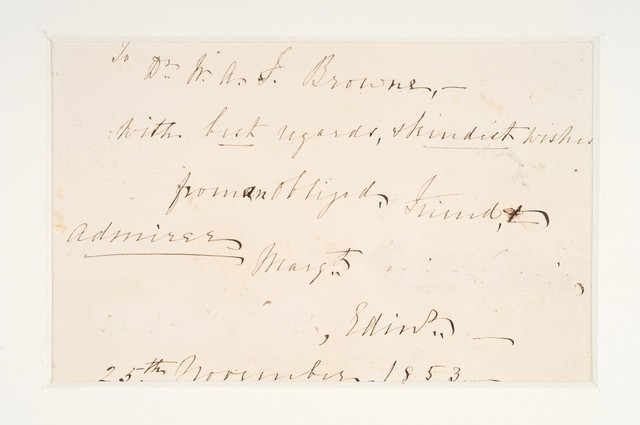 To
Dr. W. A. F. Browne,—
with best regards, & kindest wishes
from an obliged, friend, &
Admirer
Margt.
, Edinr. —
25th November 1853 —